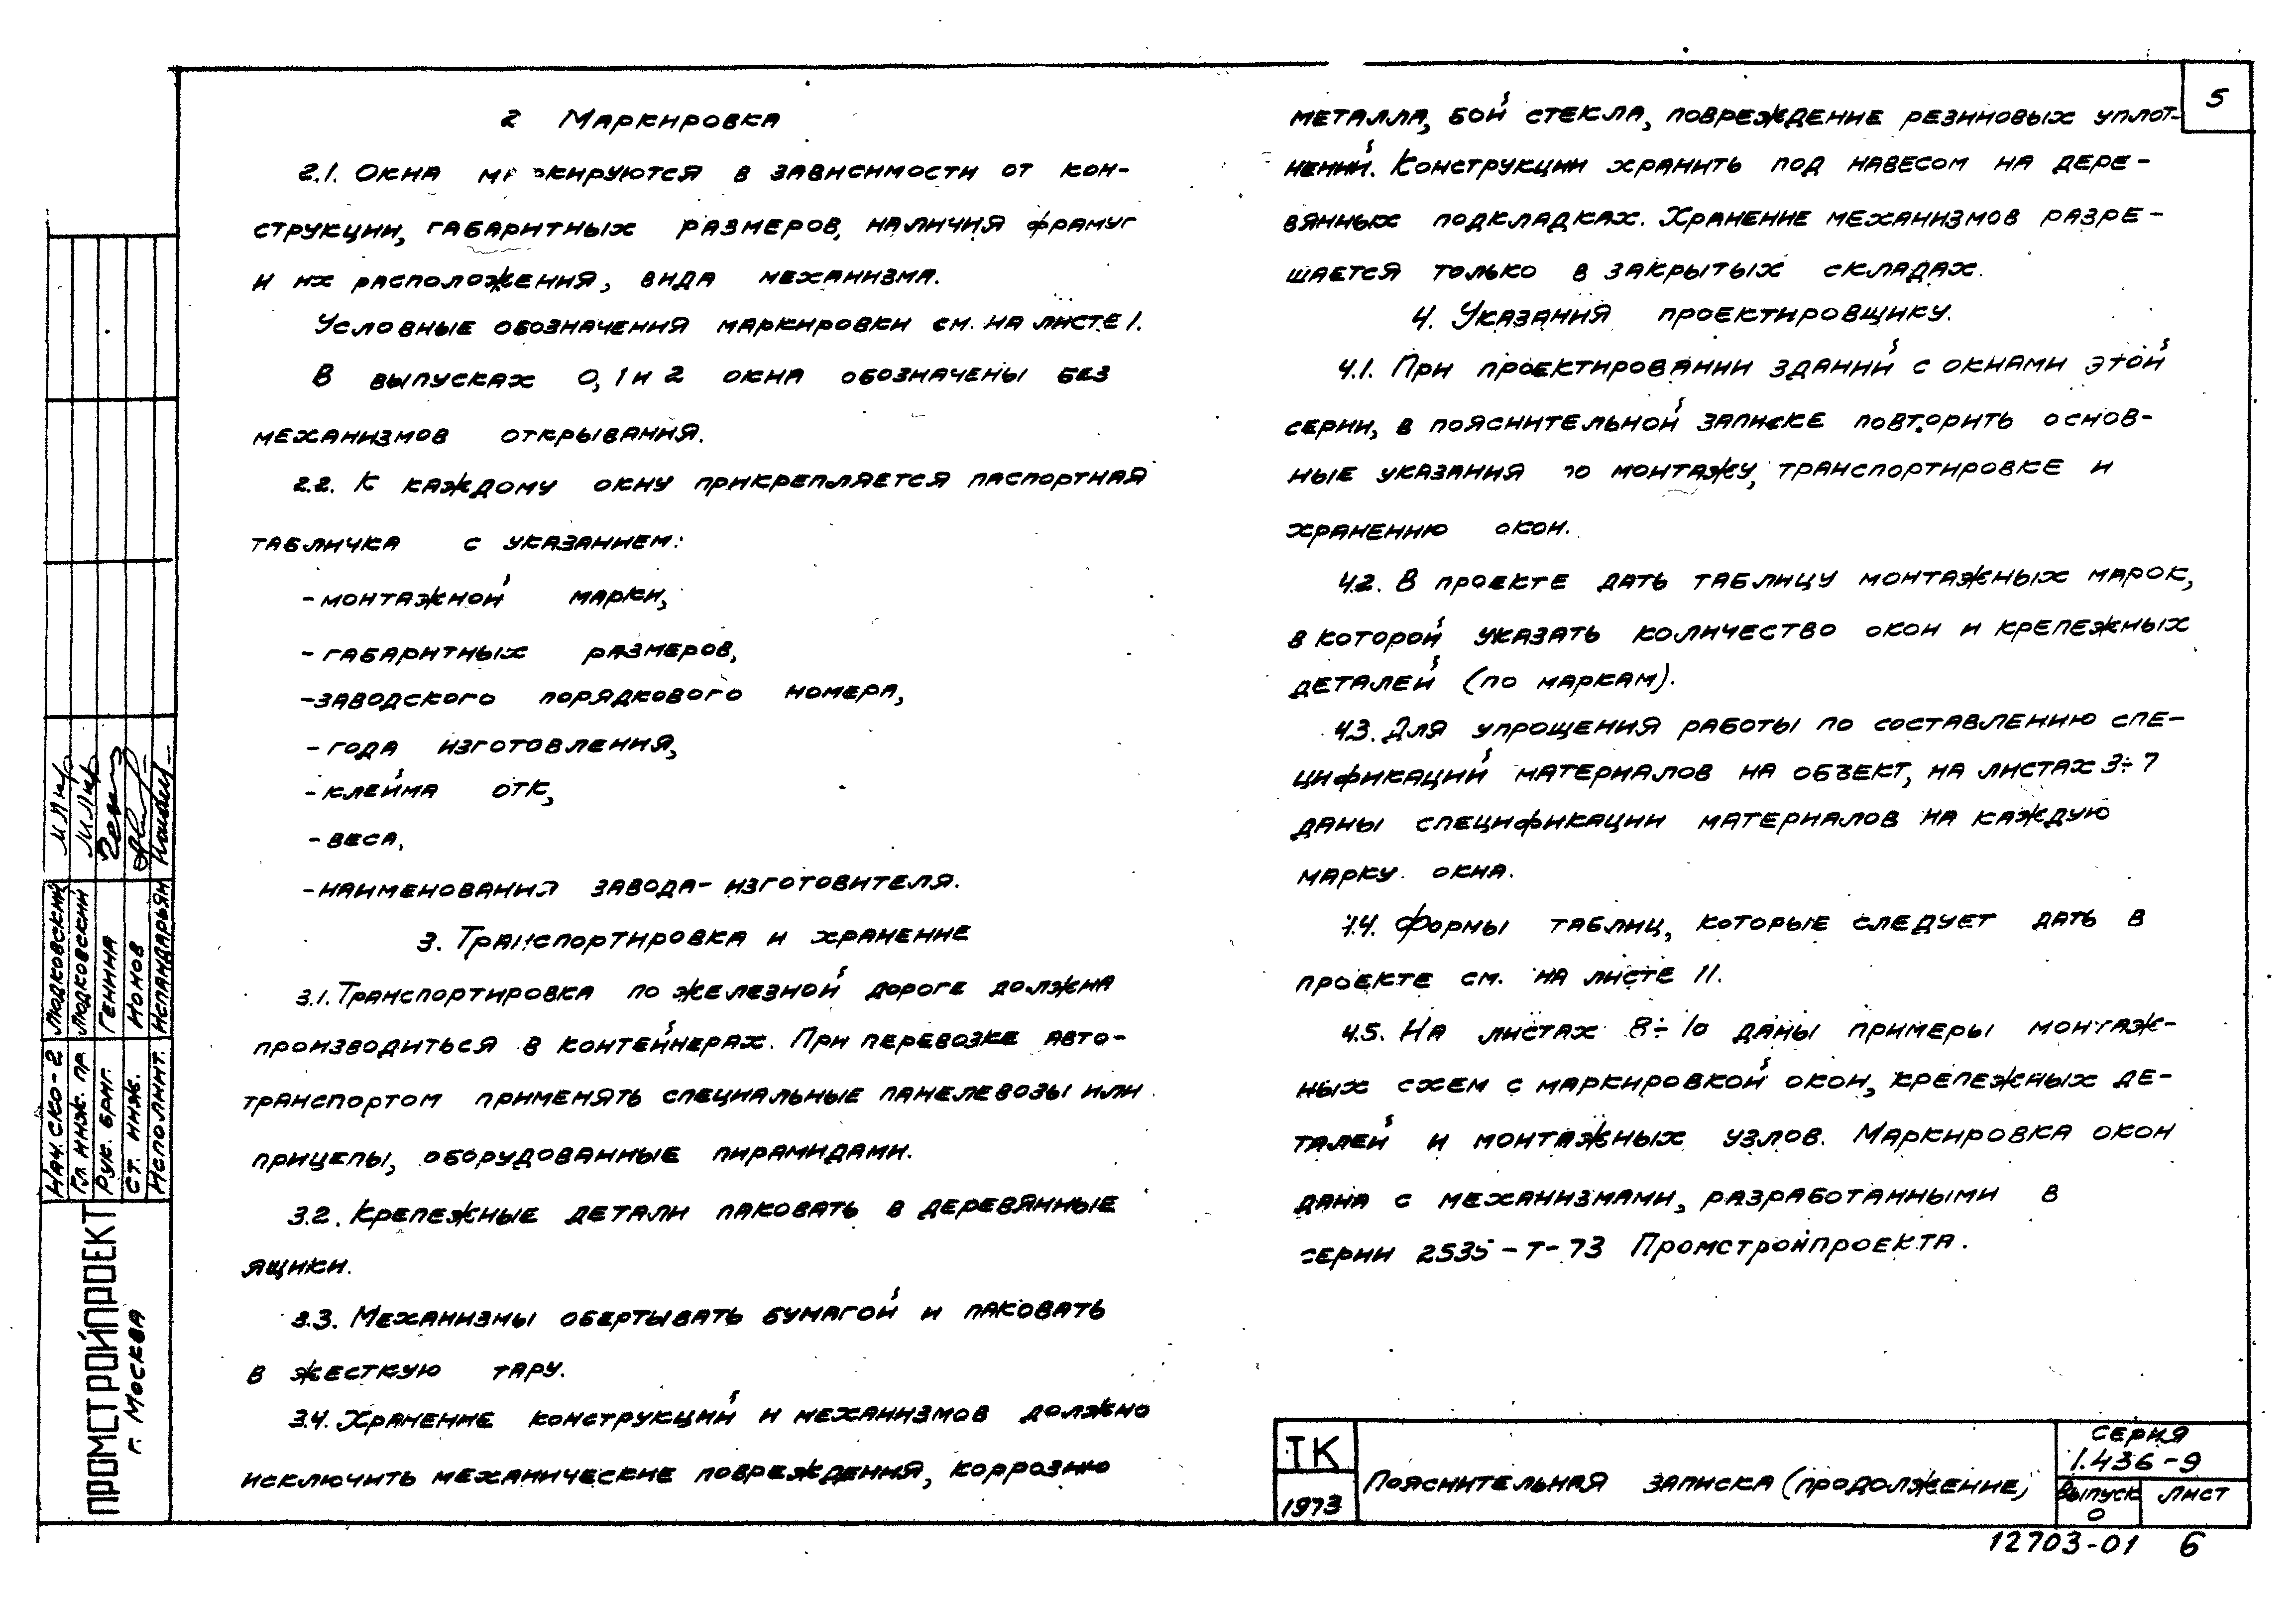 5
2 Маркировка
2.1. Окна маркируются в зависимости от кон-
струкции, габаритных размеров, наличия фрамуг
и их расположения, вида механизма.
Условные обозначения маркировки см. на листе 1.
В выпусках 0, 1 и 2 окна обозначены без
механизмов открывания.
2.2. К каждому окну прикрепляется паспортная
табличка с указанием:
-монтажной марки,
-габаритных размеров,
-заводского порядкового номера,
-года изготовления,
-клейма ОТК,
-веса,
-наименования завода-изготовителя.
3. Транспортировка и хранение
3.1. Транспортировка по железной дороге должна
производиться в контейнерах. При перевозке авто-
транспортом применять специальные панелевозы или
прицепы, оборудованные пирамидами.
3.2. Крепежные детали паковать в деревянные
ящики.
3.3. Механизмы обертывать бумагой и паковать
в жесткую тару.
3.4. Хранение конструкций и механизмов должно
исключить механические повреждения, коррозию
металла, бой стекла, повреждение резиновых уплот-
нений. Конструкции хранить под навесом на дере-
вянных подкладках. Хранение механизмов разре-
шается только в закрытых складах.
4. Указания проектировщику.
4.1. При проектировании зданий с окнами этой
серии, в пояснительной записке повторить основ-
ные указания по монтажу, транспортировке и
хранению окон.
4.2. В проекте дать таблицу монтажных марок,
в которой указать количество окон и крепежных
деталей (по маркам).
4.3. Для упрощения работы по составлению спе-
цификаций материалов на объект, на листах 3÷7
даны спецификации материалов на каждую
марку окна.
4.4. Формы таблиц, которые следует дать в
проекте см. на листе 11.
4.5. На листах 8÷10 даны примеры монтаж-
ных схем с маркировкой окон, крепежных де-
талей и монтажных узлов. Маркировка окон
дана с механизмами, разработанными в
серии 2535-Т-73 Промстройпроекта.
Нач. СКО-2 Людковский
Гл. инж. пр Людковский
Рук. бриг. Генина
Ст. инж. Ионов
Исполнит. Испандарьян
ПРОМСТРОЙПРОЕКТ
г. Москва
ТК
1973
Пояснительная записка (продолжение)
Серия
1.436-9
Выпуск
0
Лист
12703-01 6